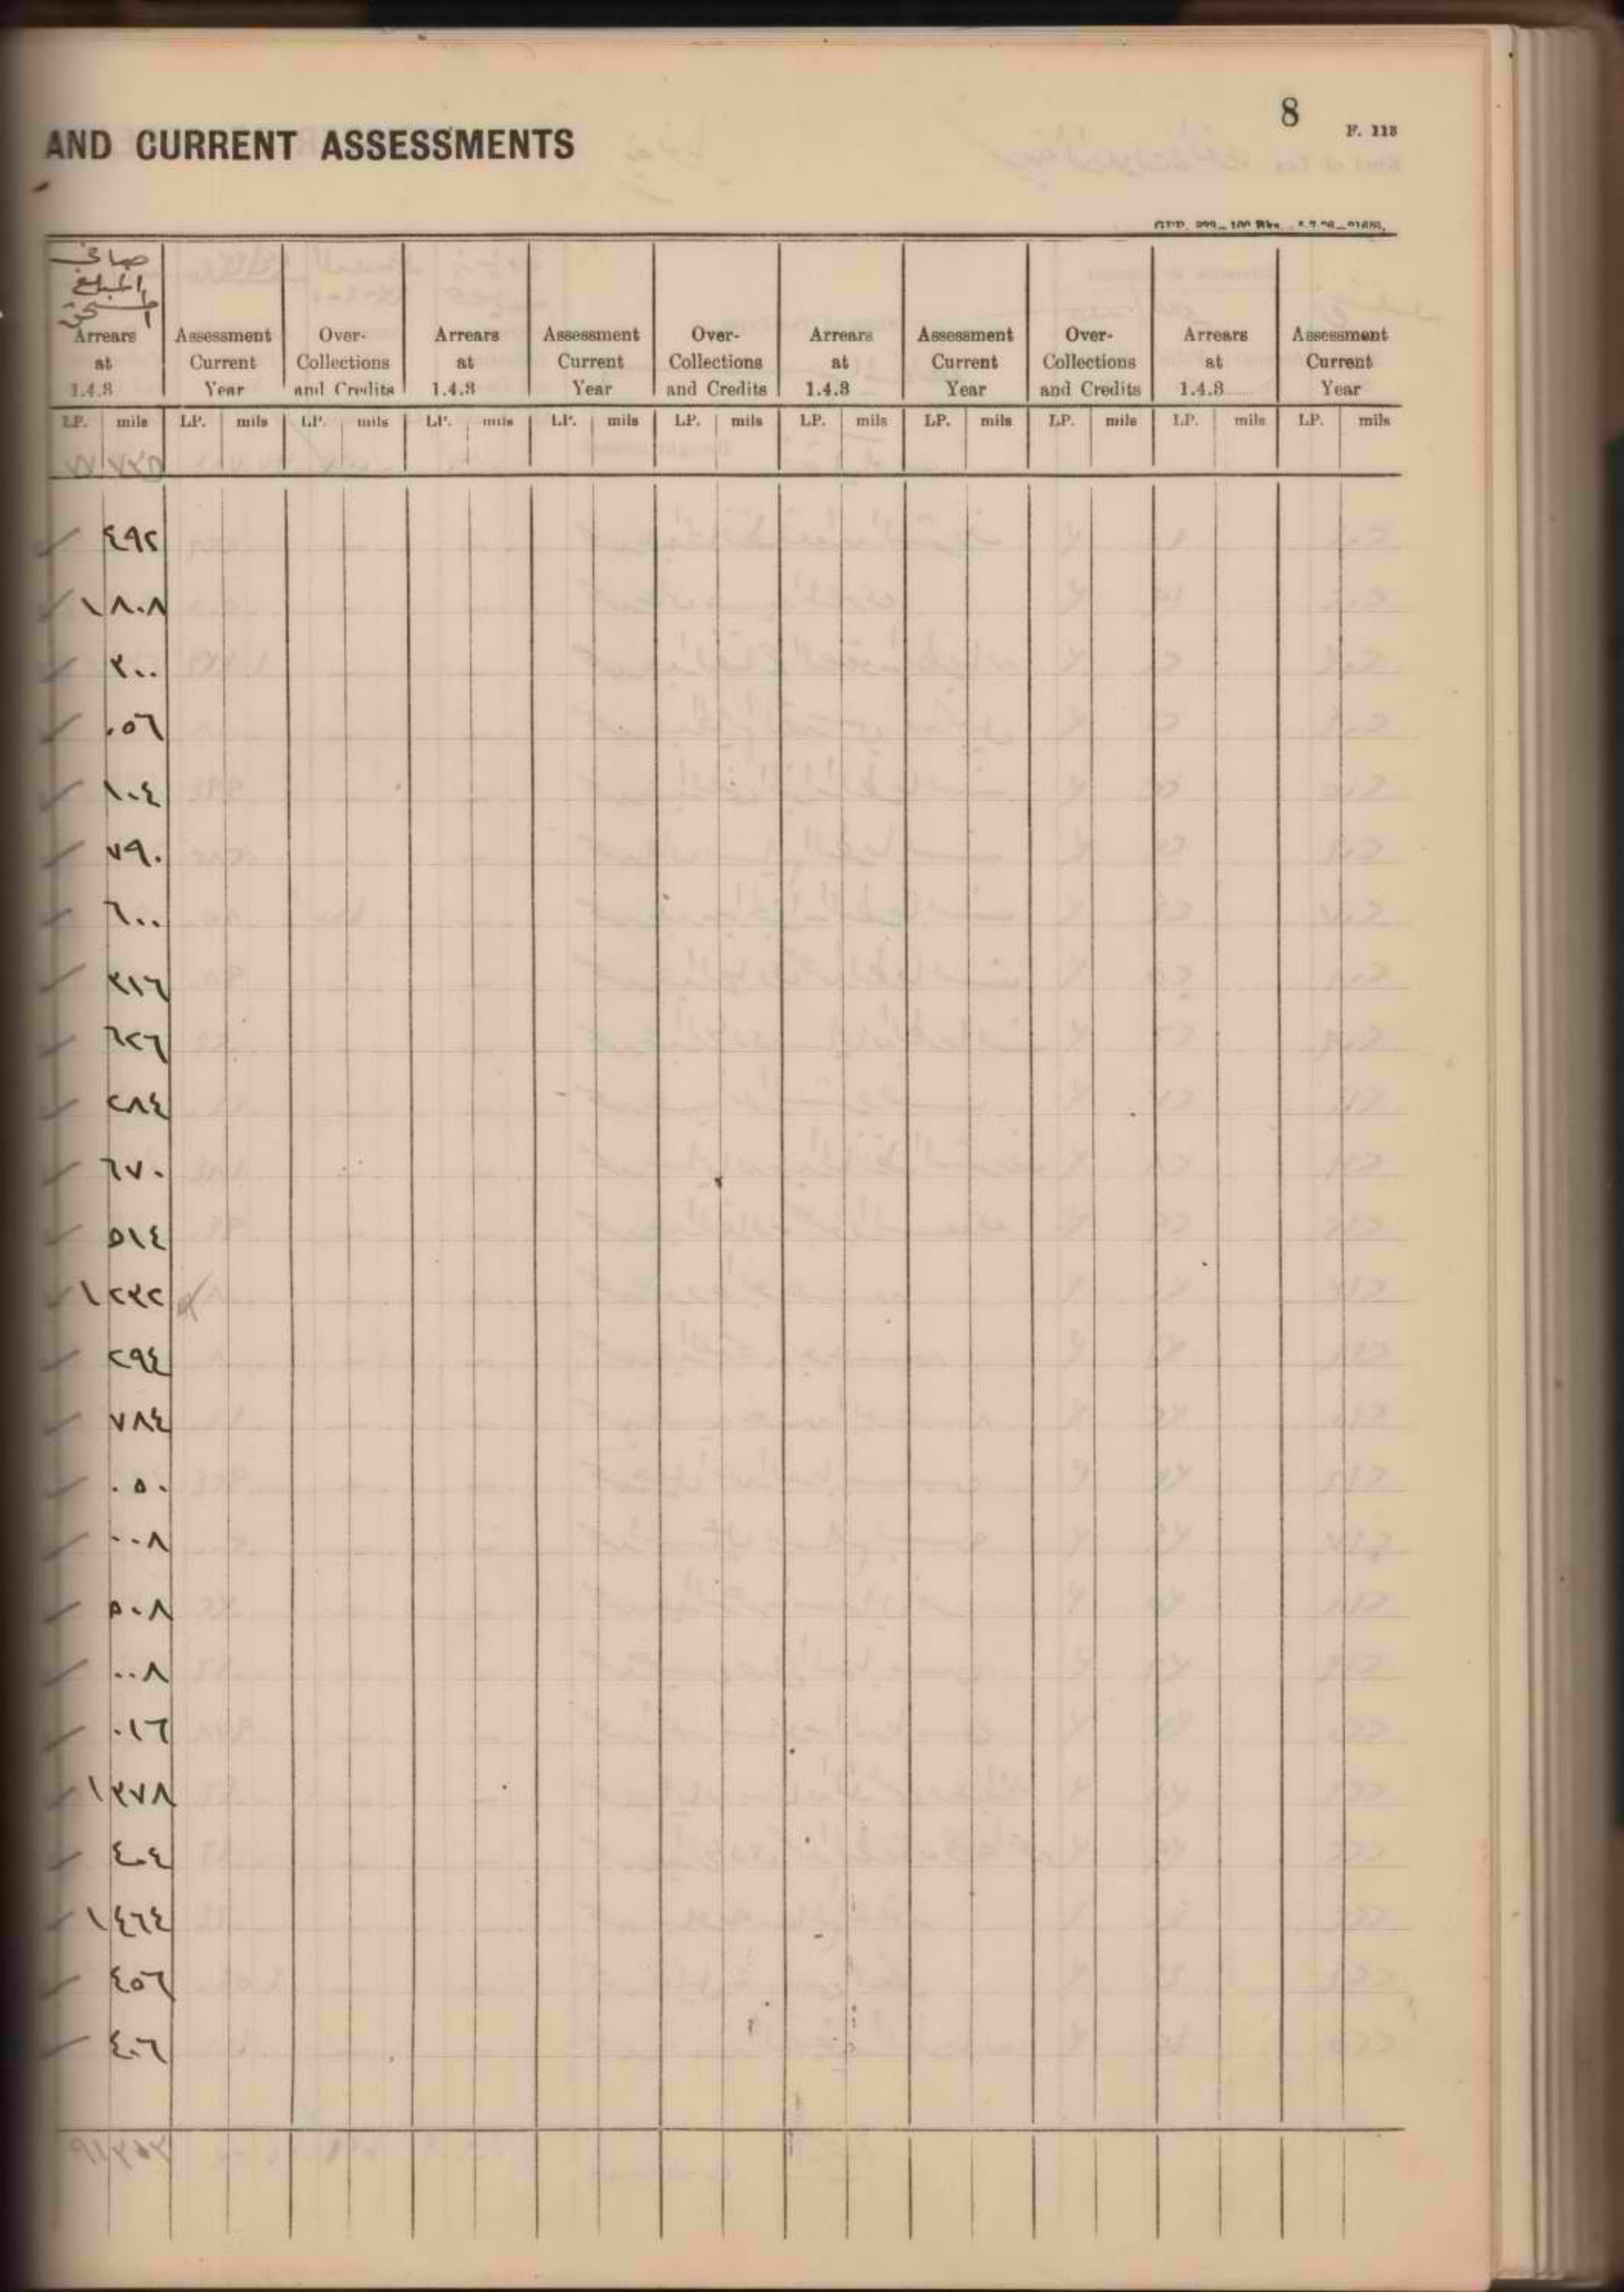 8
F. 113
AND CURRENT ASSESSMENTS
صافي
المبلغ
المستحق
Arrears at 1.4.3 Assessment Current Year Over-Collections and Credits Arrears at 1.4.3 Assessment Current Year Over-Collections and Credits Arrears at 1.4.3 Assessment Current Year Over-Collections and Credits Arrears at 1.4.3...... Assessment Current Year
LP. mils LP. mils LP. mils LP. mils LP. mils LP. mils LP. mils LP. mils LP. mils LP. mils LP. mils
٤٩٢
١ ٨٠٨
٣٠٠
٠٥٦
١٠٤
٧٩٠
٦٠٠
٣١٦
٦٢٦
٢٨٤
٦٧٠
٥١٤
١ ٢٣٢
٢٩٤
٧٨٤
٠٥٠
٠٠٨
٥٠٨
٠٠٨
٠١٦
١ ٣٧٨
٤٠٤
١ ٤٦٤
٤٥٦
٤٠٦